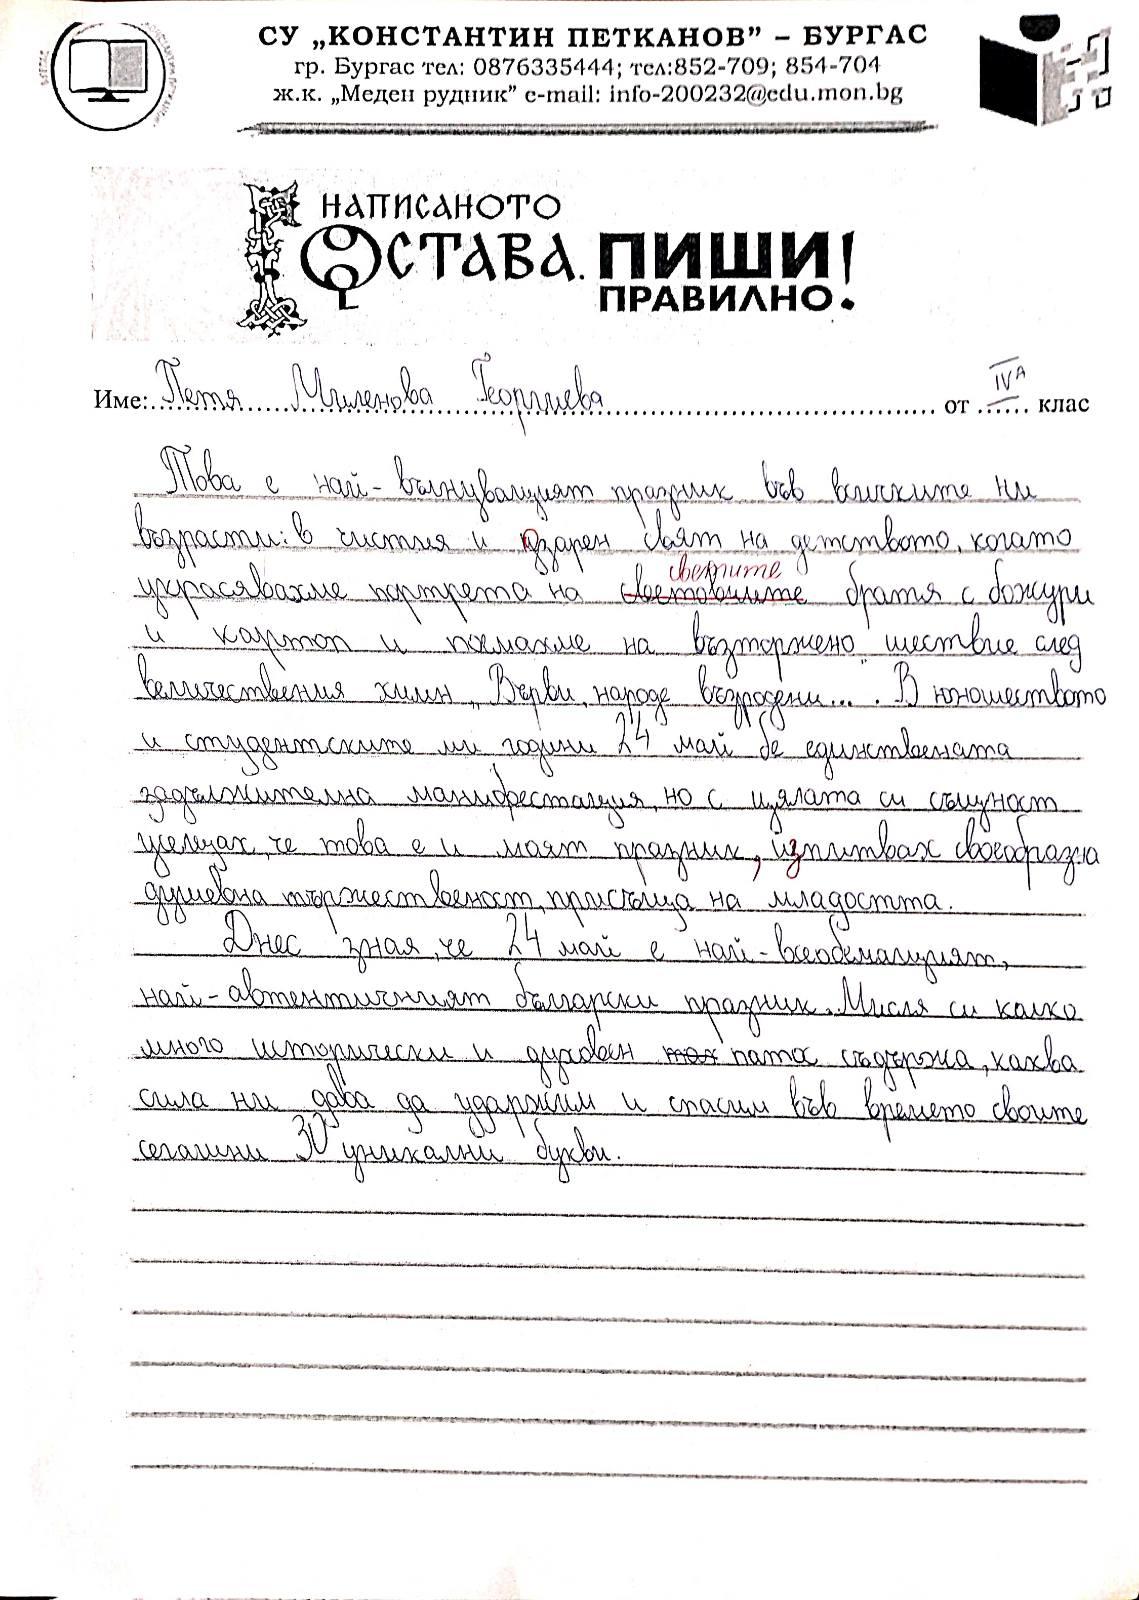 СУ „КОНСТАНТИН ПЕТКАНОВ” – БУРГАС
гр. Бургас тел: 0876335444; тел:852-709; 854-704
ж.к. „Меден рудник” e-mail: info-200232@edu.mon.bg
НАПИСАНОТО
ОСТАВА. ПИШИ
ПРАВИЛНО!
Име: Петя Миленова Георгиева от IV А клас
Това е най-вълнуващият празник във всичките ни
възрасти: в чистия и озарен свят на детството, когато
светите
украсявахме портрета на братя с божури
и картоп и поемахме на възторжено шествие след
величествения химн „Върви, народе възродени...". В юношеството
и студентските ми години 24 май бе единствената
задължителна манифестация, но с цялата си същност
усещах, че това е и моят празник, изпитвах своеобразна
душевна тържественост, присъща на младостта.
Днес зная, че 24 май е най-всеобемащият,
най-автентичният български празник. Мисля си колко
много исторически и духовен патос съдържа, каква
сила ни дава да удържим и спасим във времето своите
сегашни 30 уникални букви.